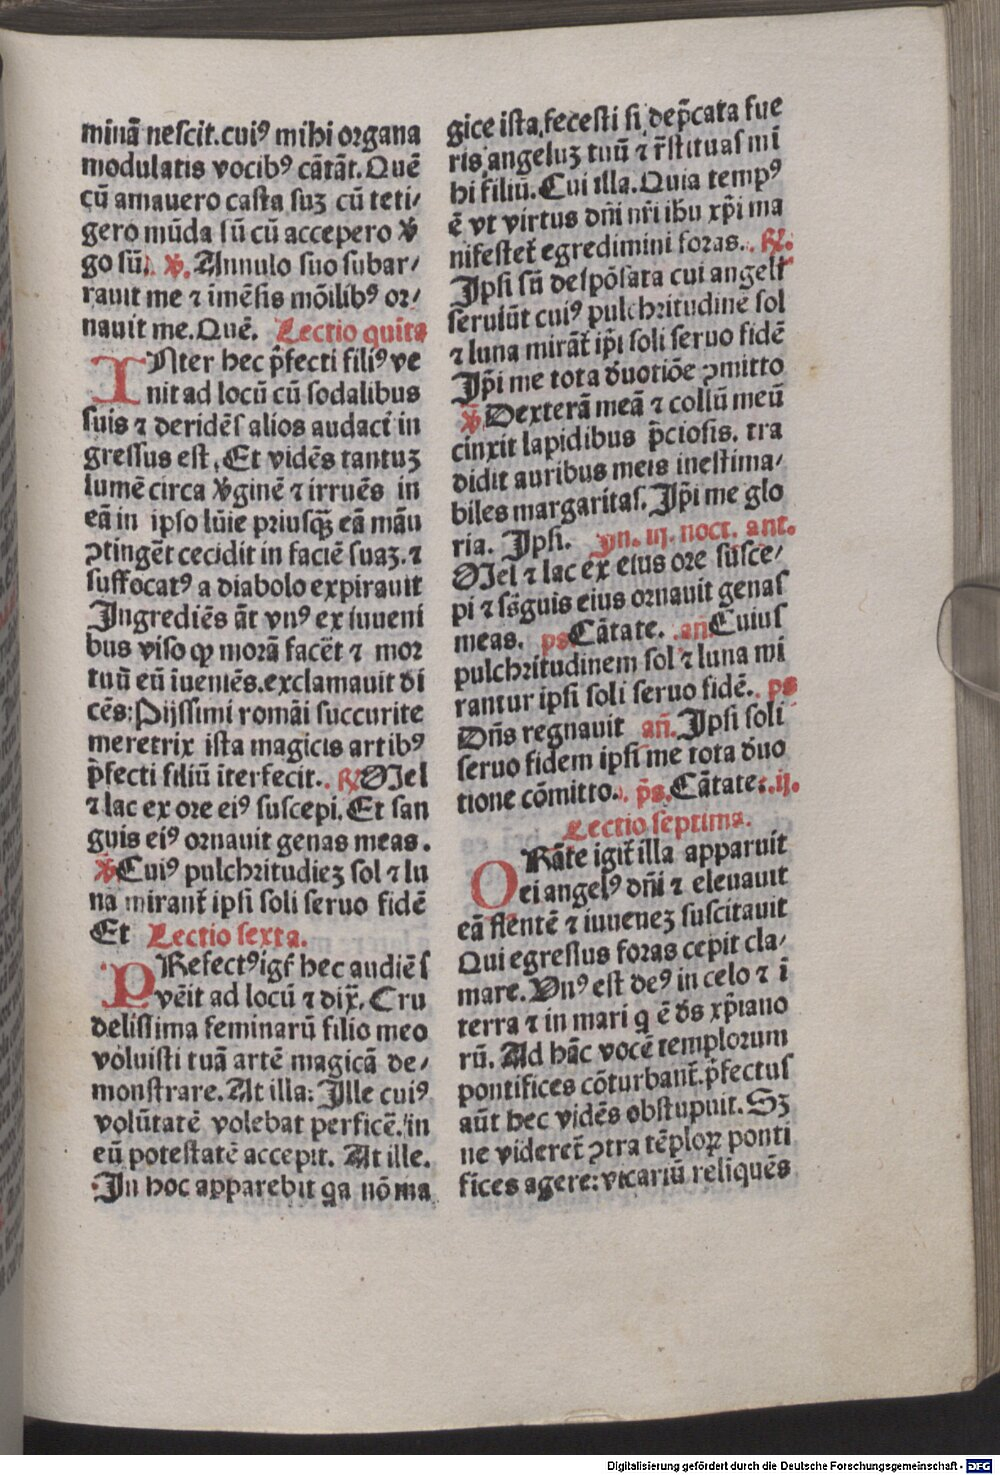 minā nescit.cuiꝰ mihi organa
modulatis vocibꝰ cātāt. Quē
cū amauero casta suꝫ cū teti/
gero mūda sū cū accepero ꝟ
go sū. ꝟ. Annulo suo subar/
rauit me ⁊ imēsis mōilibꝰ or/
nauit me. Quē. Lectio quīta
INter hec p̄fecti filiꝰ ve
nit ad locū cū sodalibus
suis ⁊ deridēs alios audact̄ in
gressus est. Et vidēs tantuꝫ
lumē circa ꝟginē ⁊ irruēs in
eā in ipso lūie priusqꝫ eā māu
ꝯtingēt cecidit in faciē suaꝫ. ⁊
suffocatꝰ a diabolo expirauit
Ingrediēs āt vnꝰ ex iuueni
bus viso ꝙ morā facēt ⁊ mor
tuū eū īueniēs.exclamauit di
cēs: Pijssimi romāi succurite
meretrix ista magicis artibꝰ
p̄fecti filiū īterfecit. ℟ Mel
⁊ lac ex ore eiꝰ suscepi. Et san
guis eiꝰ ornauit genas meas.
ꝟ Cuiꝰ pulchritudieꝫ sol ⁊ lu
na mirant̄ ipsi soli seruo fidē
Et Lectio sexta.
PRefectꝰ igit̄ hec audiēs
vēit ad locū ⁊ dix̄. Cru
delissima feminarū filio meo
voluisti tuā artē magicā de/
monstrare. At illa: Ille cuiꝰ
volūtatē volebat perficē. in
eū potestatē accepit. At ille.
In hoc apparebit qa nō ma
gice ista fecesti si dep̄cata fue
ris angeluꝫ tuū ⁊ r̄stituas mi
hi filiū. Cui illa. Quia tempꝰ
ē vt virtus dn̄i nr̄i ihu xp̄i ma
nifestet̄ egredimini foras. ℟.
Ipsi sū despōsata cui angeli
seruiūt cuiꝰ pulchritudinē sol
⁊ luna mirāt̄ ip̄i soli seruo fidē
Ip̄i me tota d̄uotiōe ꝯmitto
ꝟ Dexterā meā ⁊ collū meū
cinxit lapidibus p̄ciosis. tra
didit auribus meis inestima/
biles margaritas. Ip̄i me glo
ria. Ipsi. yn. iij. noct. ant.
Mel ⁊ lac ex eius ore susce/
pi ⁊ sāguis eius ornauit genas
meas. ps Cātate. an̄. Cuius
pulchritudinem sol ⁊ luna mi
rantur ipsi soli seruo fidē. ps
Dn̄s regnauit an̄. Ipsi soli
seruo fidem ipsi me tota d̄uo
tione cōmitto. p̄s. Cātate. ij.
Lectio septima.
ORāte igit̄ illa apparuit
ei angelꝰ dn̄i ⁊ eleuauit
eā flentē ⁊ iuueneꝫ suscitauit
Qui egressus foras cepit cla/
mare. Vnꝰ est deꝰ in celo ⁊ ī
terra ⁊ in mari q ē d̄s xp̄iano
rū. Ad hāc vocē templorum
pontifices cōturbant̄. p̄fectus
aūt hec vidēs obstupuit. Sꝫ
ne videret̄ ꝯtra tēploꝝ ponti
fices agere: vicariū reliquēs
Digitalisierung gefördert durch die Deutsche Forschungsgemeinschaft - DFG